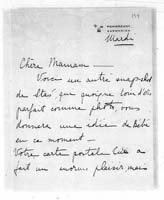 Mardi
Chère Maman —
Voici un autre snapshot
de
que quoique loin d'être
parfait comme photo, vous
donnera une idée de Bébé
en ce moment —
Votre carte postale
a
fait un énorme plaisir, mais